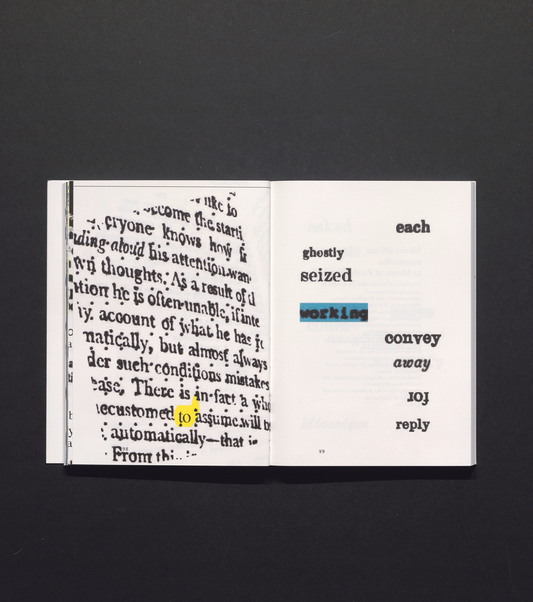 like to
come the starti
eryone knows how fr
ding-aloud his attention wan
wn thoughts. As a result of d
tion he is often unable, if inte
ly. account of what he has ju
matically, but almost always
der such conditions mistakes
ease, There is in fact a who
accustomed to assume will
automatically—that is
From thi
each
ghostly
seized
working
convey
away
for
reply
99